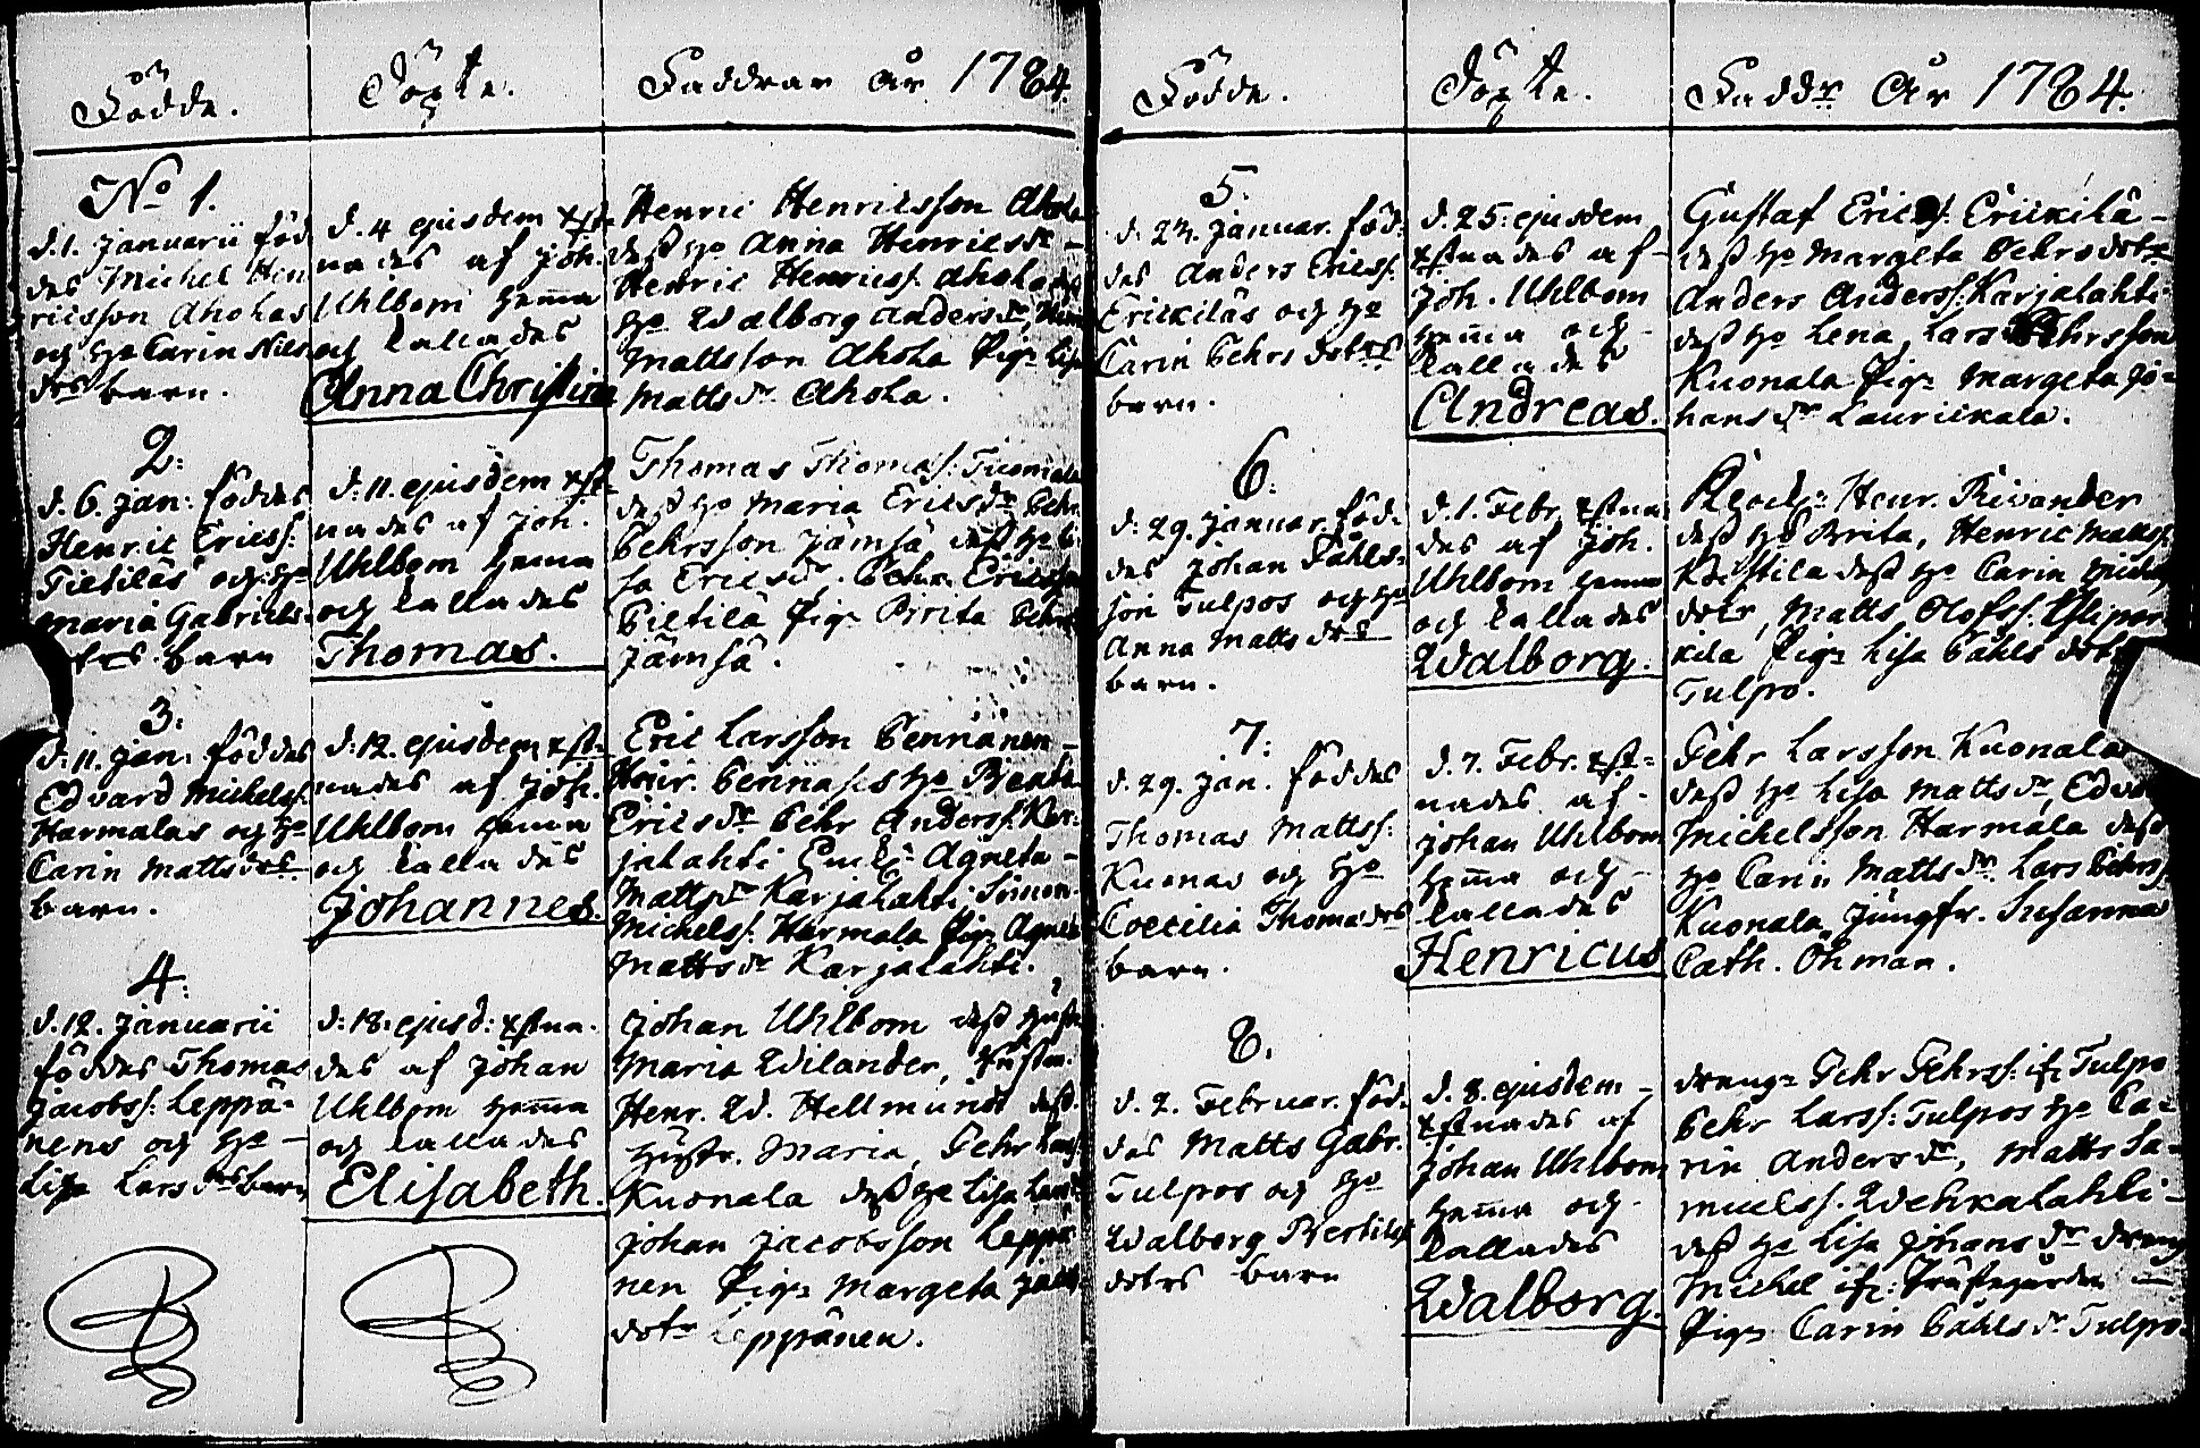 Födde.
Döpte.
Faddrar År 1784.
No 1.
d. 1. Januarii föd
des Michel Hen
ricsson Aholas
och ho Carin Nils
drs barn.
d. 4 ejusdem xst-
nades af Joh.
Uhlbom hema
och kallades
Anna Christina
Henric Henricsson Ahola
dess ho Anna Henricsdr -
Henric Henricss. Ahola dess
ho Walborg Andersdr,
Mattsson Ahola Pig: Lisa
Mattsdr Ahola.
2:
d. 6. Jan: föddes
Henric Ericss:
Pietiläs och ho
Maria Gabriels-
barn
d: 11. ejusdem xst-
nades af Joh.
Uhlbom hema
och kallades
Thomas.
Thomas Thomass: Tuomala
dess ho Maria Ericsdr Pehr
Pehrsson Jämsä dess ho Li-
sa Ericsdr. Pehr Ericsson
Pietilä Pig: Brita Pehrs
Jämsä.
3.
d: 11. Jan: föddes
Edvard Michelss.
Harmalas och ho
Carin Mattsdrs
barn.
d: 12. ejusdem xst-
nades af Joh.
Uhlbom hema
och kallades
Johannes.
Eric Larsson Pennanen -
Henr. Pennases ho Beata
Ericsdr Pehr Anderss: Kar-
jalahti Enck: Agneta -
Mattsdr Karjalahti, Simon
Michelss. Harmala Pig: Agneta
Mattsdr Karjalahti.
4:
d. 12. Januarii
föddes Thomas
Jacobss: Leppä-
nens och ho -
Lisa Larsdrs barn
d: 18: ejusd: xstna-
des af Johan
Uhlbom hema
och kallades
Elisabeth.
Johan Uhlbom dess hustr
Maria Wilander,
Henr. Wd. Hellmund dess
hustr. Maria, Pehr Larss
Kuonala dess ho Lisa Larsd
Johan Jacobsson Leppä
nen Pig: Margeta Jacob
dotr Leppänen.
Födde.
Döpte.
Faddr År 1784.
5.
d. 23. Januar. föd-
des Anders Ericss.
Erickiläs och ho
Carin Pehrsdotrs
barn.
d. 25: ejusdem
xstnades af -
Joh. Uhlbom
hema och -
kallades
Andreas.
Gustaf Ericss. Erickilä -
dess ho Margeta Pehrsdotr
Anders Anderss: Karjalahti
dess ho Lena, Lars Pehrsson
Kuonala Pig: Margeta Jo-
hansdr Laurickala.
6:
d: 29. Januar. föd-
des Johan Påhls-
son Tulpos och ho
Anna Mattsdrs
barn.
d. 1. Febr. xstna-
des af Joh.
Uhlbom hema
och kallades
Walborg.
Klock: Henr. Rivander
dess ho Brita, Henric Mattss.
Köistila dess ho Carin
dotr, Matts Olofss.
kila Pig: Lisa Påhlsdotr
Tulpo.
7:
d. 29. Jan. föddes
Thomas Mattss:
Kuonas och ho
Coecilia Thomædrs
barn.
d. 7. Febr. xst-
nades af -
Johan Uhlbom
hema och -
kallades
Henricus
Pehr Larsson Kuonala
dess ho Lisa Mattsdr, Edva
Michelsson Harmala dess
ho Carin Mattsdr. Lars Pehrss.
Kuonala, Jungfr. Susanna
Cath. Öhman.
8.
d. 2. Februar. föd-
des Matts Gabr.
Tulpos och ho
Walborg Bertils
dotrs barn
d. 8. ejusdem -
xstnades af
Johan Uhlbom
hema och -
kallades
Walborg.
dreng: Pehr Pehrss: ifr Tulpo
Pehr Larss: Tulpos ho Ca-
rin Andersdr, Matts Sa-
muelss. Wehkalahti -
dess ho Lisa Johansdr dreng
Michel ifr: Prästegården
Pig: Carin Påhlsdr Tulpo.